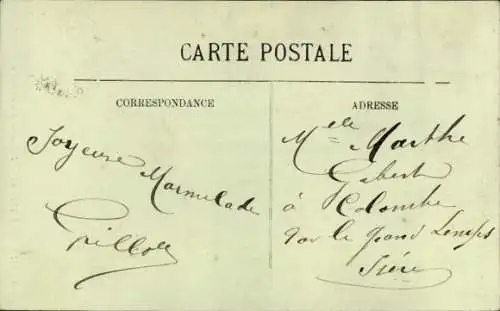 CARTE POSTALE
CORRESPONDANCE
ADRESSE
Joyeuse
Marmelade
Grillon
Melle Marthe
Gibert
à Colombe
par le grand Lemps
Isère